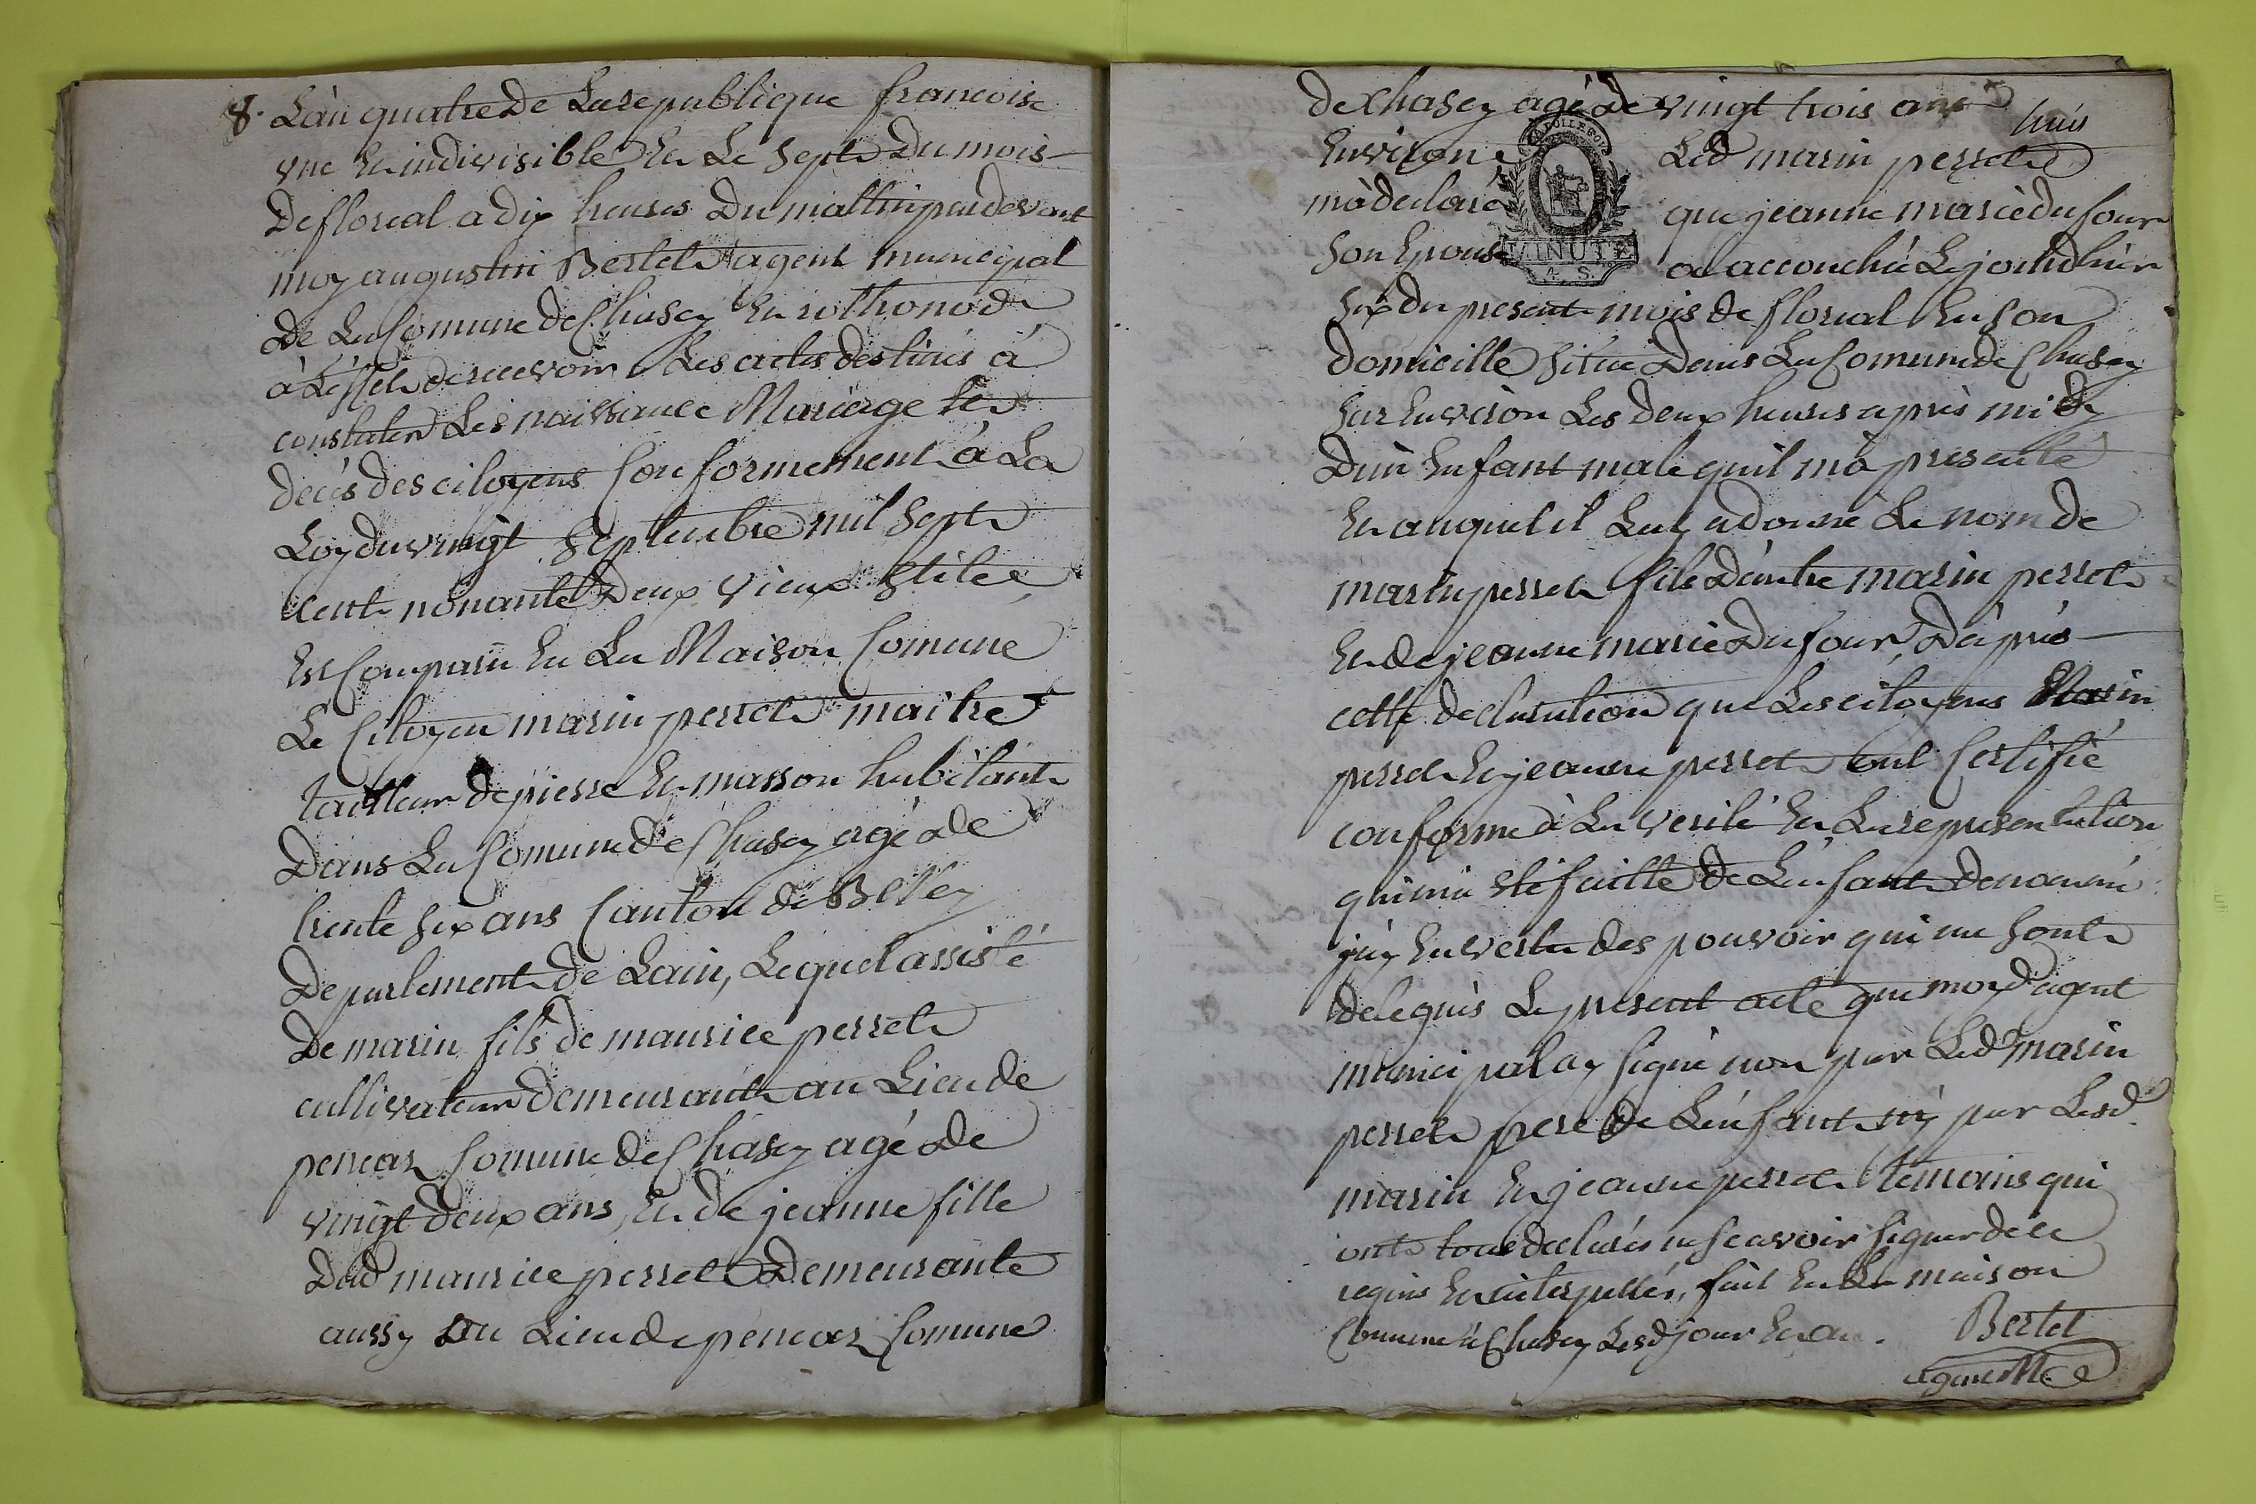 8. L'an quatre de La republique francoise
vne et indivisible et Le Sept du mois
de floreal a dix heures du mattin pardevant
moy augustin Bertet agent municipal
de La Comune de Chasey et rothonod
à L'effet de recevoir Les actes destinés à
constater Les naissance Mariage et
décés des citoyens Conformement à La
Loy du vingt Septembre mil Sept
cent nonante deux vieux Stile,
Est Comparu en La Maison Comune
Le Citoyen marin perret maitre
tailleur de pierre et masson habitant
dans La Comune de Chasey agé de
trente Six ans Canton de Belley
departement de Lain, Lequel assisté
de marin fils de maurice perret
cultivateur demeurant au Lieu de
pencaz Comune de Chasey agé de
vingt deux ans, et de jeanne fille
dud maurice perret demeurante
aussy au Lieu de pencaz Comune
de Chasey agé de vingt trois ans
Environ Led marin perret
m'à declaré que jeanne marie dufour
Son Epouse a accouchée Le jourd'hier
Six du present mois de floreal En Son
domicille Situé dans La Comune de Chasey
Sur Environ Les deux heures après midy
d'un Enfant male quil m'à presenté
et auquel il Luy a donné Le nom de
marin perret fils d'autre marin perret
et de jeanne marie Dufour, D'après
cette declaration que Les citoyens Marin
perret et jeanne perret ont Certifié
conforme à La verité et La representation
qui m'a eté faitte de L'enfant denommé
j'ay En vertu des pouvoir qui me Sont
delegués Le present acte que moy d agent
municipal ay Signé non par Led marin
perret pere de L'enfant ny par Lesd
marin et jeanne perret temoins qui
ont tous declarés ne Scavoir Signer de ce
requis et interpellés, fait en La maison
Comune à Chasey Lesd jour et an. Bertet
agent M.
MINUTE
4. S.